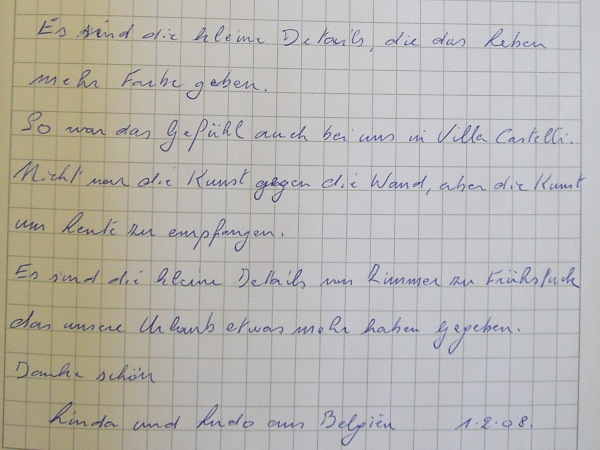 Es sind die kleine Details, die das Leben
mehr Farbe geben.
So war das Gefühl auch bei uns in Villa Castelli.
Nicht nur die Kunst gegen die Wand, aber die Kunst
um Leute zu empfangen.
Es sind die kleine Details um Zimmer zu Frühstuck
das unsere Urlaub etwas mehr haben gegeben.
Danke schön
Linda und Ludo aus Belgiën 1.2.08.